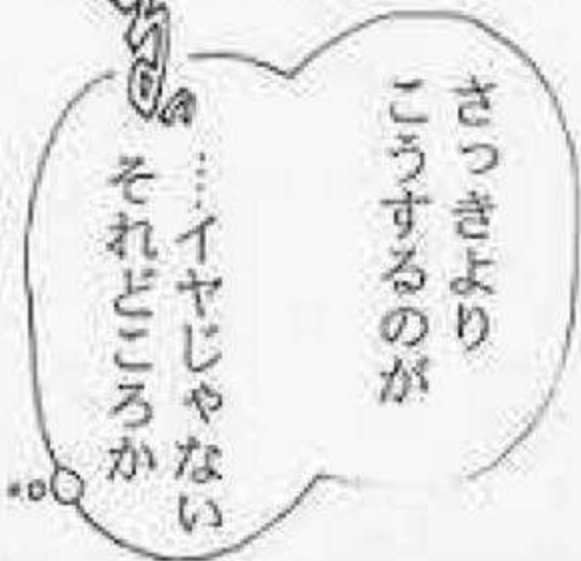 さっきより
こうするのが
…イヤじゃない
それどころか